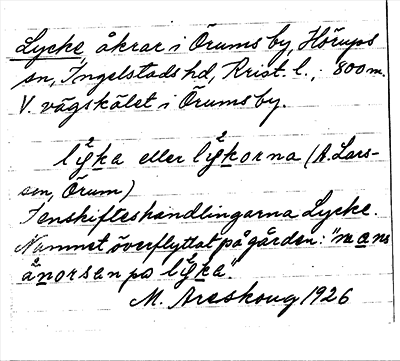 Lycke åkrar i Örums by, Hörups
sn, Ingelstads hd, Krist. l., 800 m.
V. vägskälet i Örums by.
lyka eller lykorna (A. Lars-
son, Örum)
I enskifteshandlingarna Lycke.
Namnet överflyttat på gården: "mans
ånorsen pø lyka".
M. Areskoug 1926